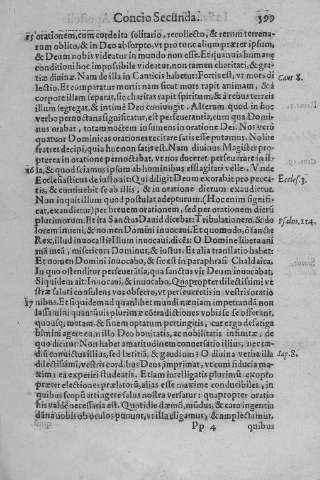 Concio Secunda. 399
25 orationem, cum corde ita solitario, recollecto, & rerum terrena-
rum oblito, & in Deo absorpto, vt pro tunc aliquã præter ipsum,
& Deum nobis videatur in mundo non esse. Et quamuis humanę
conditioni hoc impossibile videatur, non tamen charitati, & gra-
tiæ diuinæ. Nam de illa in Canticis habetur: Fortis est, vt mors di
lectio. Et comparatur morti: nam sicut mors rapit animam, & à Cant. 8.
corpore illam separat, sic charitas rapit spiritum, & à rebus terrenis
illum segregat, & intimè Deo coniungit. Alterum quod in hoc
verbo pernoctans significatur, est perseuerantia, cum qua Domi-
nus orabat, totam noctem insumens in oratione Dei. Nos verò
quatuor Dominicas orationes recitare satis esse putamus. Nolite
fratres decipi, quia hoc non satis est. Nam diuinus Magister pro-
pterea in oratione pernoctabat, vt nos doceret perseuerare in il-
26 la, & quod sciamus ipsum ab hominibus efflagitari velle. Vnde
Ecclesiasticus de iusto ait: Qui diligit Deum exorabit pro pecca- Eccles. 3.
tis, & continebit se ab illis, & in oratione dierum exaudietur.
Non inquit illum quod postulat adepturum. (Hoc enim signifi-
cat, exaudietur) per breuem orationem, sed per orationem dierũ
plurimorum. Et ita Sanctus Dauid dicebat: Tribulationem, & do Psalm. 114.
lorem inueni, & nomen Domini inuocaui. Et quomodo, ô sanche
Rex, illud inuocasti? Illum inuocaui, dicēs: O Domine libera ani
mã meã, misericors Dominus, & iustus. Et alia translatio habet:
Et nomen Domini inuocabo, & sic est in paraphrasi Chaldaica.
In quo ostenditur perseuerātia, qua sanctus vir Deum inuocabat,
Siquidem ait: Inuocaui, & inuocabo. Quapropter dilectissimi ve
stræ saluti consulens vos obsecro, vt perseueretis in vestris oratio
27 nibus. Et siquidem ad quamlibet mundi
lassamini quamuis plurimæ cõtradictiones vobis se offerant,
quousq; motam, & finem optatum pertingitis, cur ergo defatiga
bimini agere cum illo Deo bonitatis, ac nobilitatis infinitæ, de
quo dicitur: Non habet amaritudinem conuersatio illius, nec tæ-
diũ conuictus illius, sed lætitiã, & gaudium? O diuina verba illa Sap. 8.
dilectissimi, vestris cordibus Deus imprimat, vt cum fiducia ma-
xima ea experiri studeatis. Etiam intelligatis plurimũ
præter electiones prælatorũ, alias esse maxime conducibiles, in
quibus agere salus nostra versatur: quapropter oratio
his valde necessaria est. Quotidie dæmõ, mũdus, & caro ingentia
dãna nobis ob oculos ponunt, vt illa eligamus, & amplectamur.
Pp 4 quibus